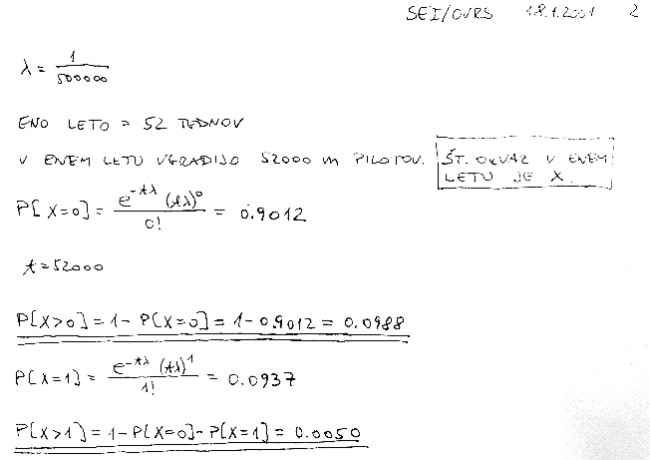 SEI/OVRS 18.1.2001 2
λ = 1/500000
ENO LETO = 52 TEDNOV
V ENEM LETU VGRADIJO 52000 m PILOTOV. ŠT. OKVAR V ENEM
LETU JE X.
P[X=0] = e^-tλ (tλ)^0 / 0! = 0.9012
t = 52000
P[X>0] = 1 - P[X=0] = 1 - 0.9012 = 0.0988
P[X=1] = e^-tλ (tλ)^1 / 1! = 0.0937
P[X>1] = 1 - P[X=0] - P[X=1] = 0.0050